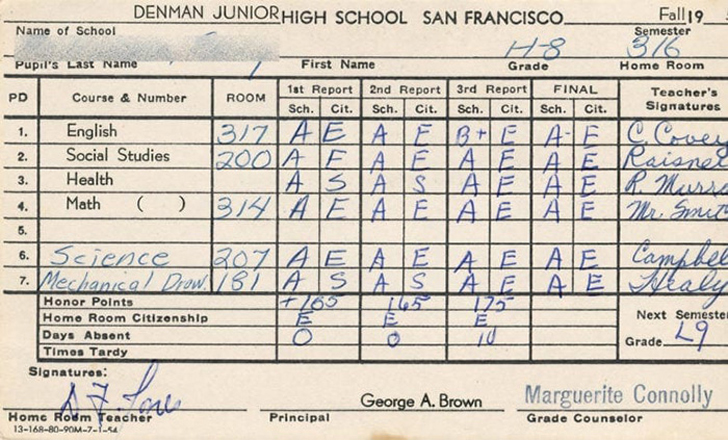 DENMAN JUNIOR HIGH SCHOOL SAN FRANCISCO Fall 19
Name of School Semester
H-8 316
Pupil's Last Name First Name Grade Home Room
PD Course & Number ROOM 1st Report 2nd Report 3rd Report FINAL Teacher's Signatures
Sch. Cit. Sch. Cit. Sch. Cit. Sch. Cit.
1. English 317 A E A E B+ E A- E C. Covey
2. Social Studies 200 A E A E A E A E Raisne
3. Health A S A S A E A E R. Murr
4. Math ( ) 314 A E A E A E A E Mr. Smit
5.
6. Science 207 A E A E A E A E Campbel
7. Mechanical Draw. 181 A S A S A E A E Healy
Honor Points +165 165 175
Home Room Citizenship E E E Next Semest
Days Absent 0 0 10 Grade L9
Times Tardy
Signatures:
George A. Brown Marguerite Connolly
Home Room Teacher Principal Grade Counselor
13-168-80-90M-7-1-54